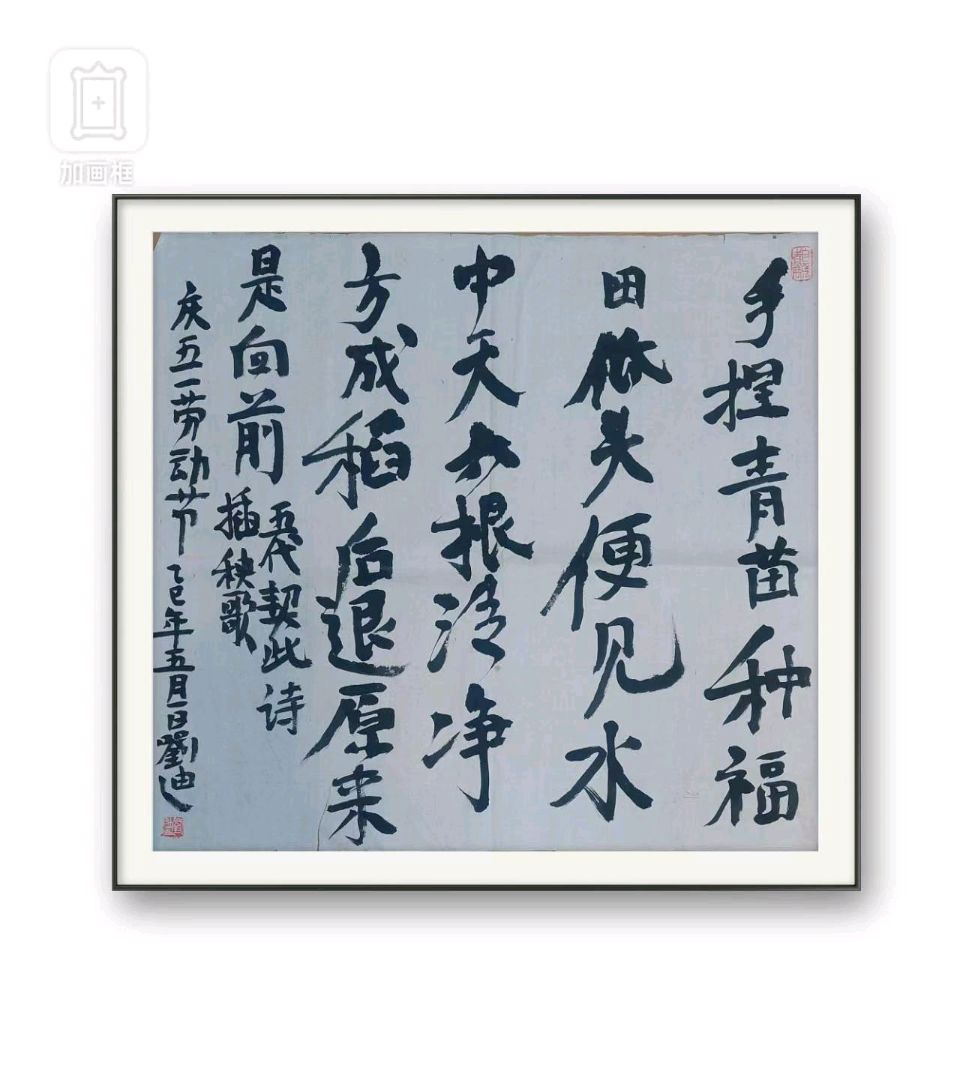 加画框
手捏青苗种福
田低头便见水
中天六根清净
方成稻后退原来
是向前
五代契此诗
插秧歌
庆五一劳动节 乙巳年五月一日劉迪